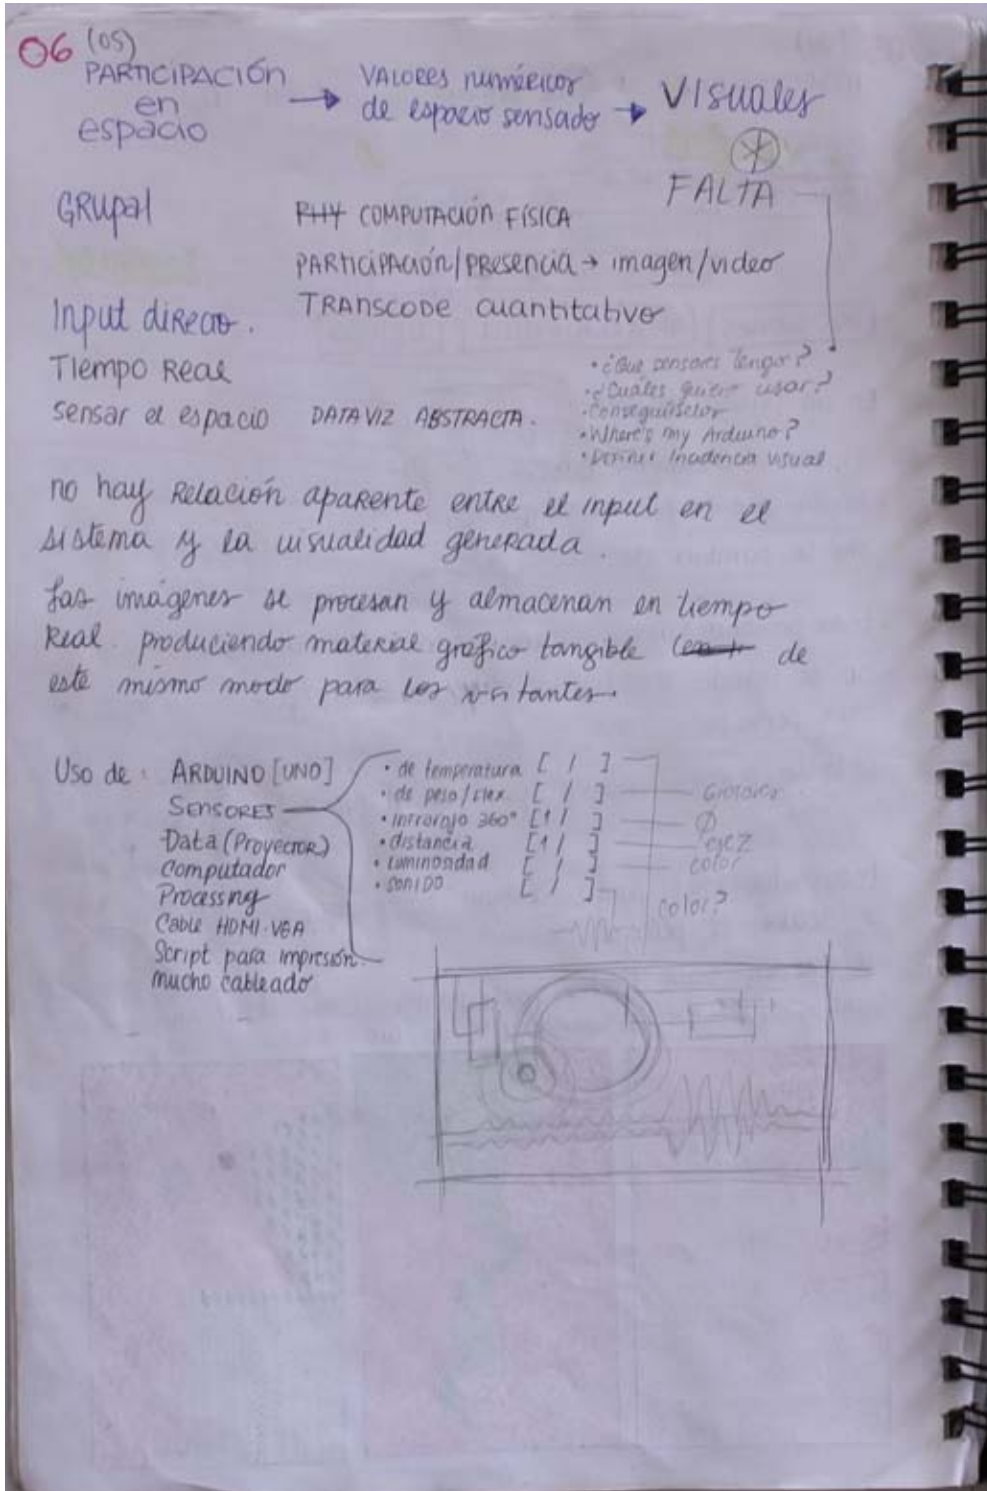 06 (05)
PARTICIPACIÓN
en
espacio
VALORES numéricos
de espacio sensado
VISUALES
FALTA
GRUPAL
PHY COMPUTACIÓN FÍSICA
PARTICIPACIÓN/PRESENCIA → imagen/video
Input directo.
TRANSCODE cuantitativo
Tiempo Real
sensar el espacio DATAVIZ ABSTRACTA.
• ¿Qué sensores tengo?
• ¿Cuáles quiero usar?
• Conseguírselos
• Where's my Arduino?
• Definir incidencia visual
no hay Relación aparente entre el input en el
sistema y la visualidad generada.
Las imágenes se procesan y almacenan en tiempo
Real. produciendo material gráfico tangible de
este mismo modo para los visitantes.
Uso de: ARDUINO [UNO]
SENSORES
Data (Proyector)
Computador
Processing
Cable HDMI-VGA
Script para impresión
mucho cableado
• de temperatura [ / ]
• de peso/flex. [ / ]
• infrarojo 360° [1/ ] Ø
• distancia [1/ ] eje Z
• luminosidad [ / ] color
• sonido [ / ] color?